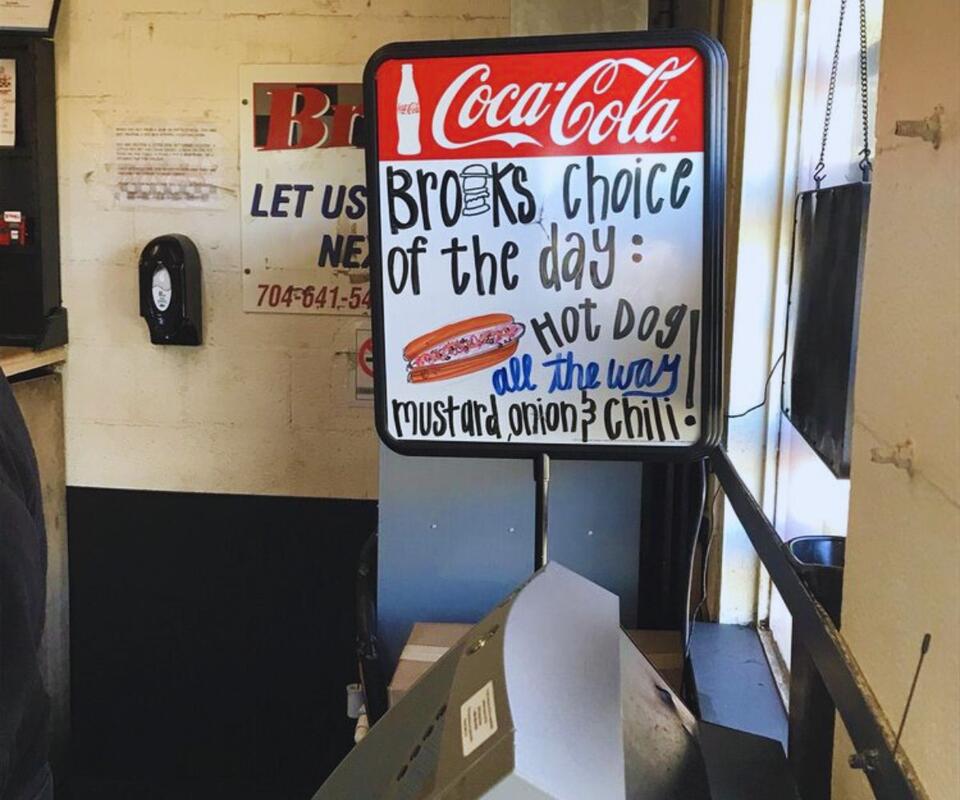 Coca-Cola
Brooks choice
of the day:
Hot Dog
all the way!
mustard, onion & Chili!
Br
LET US
NEX
704-641-54